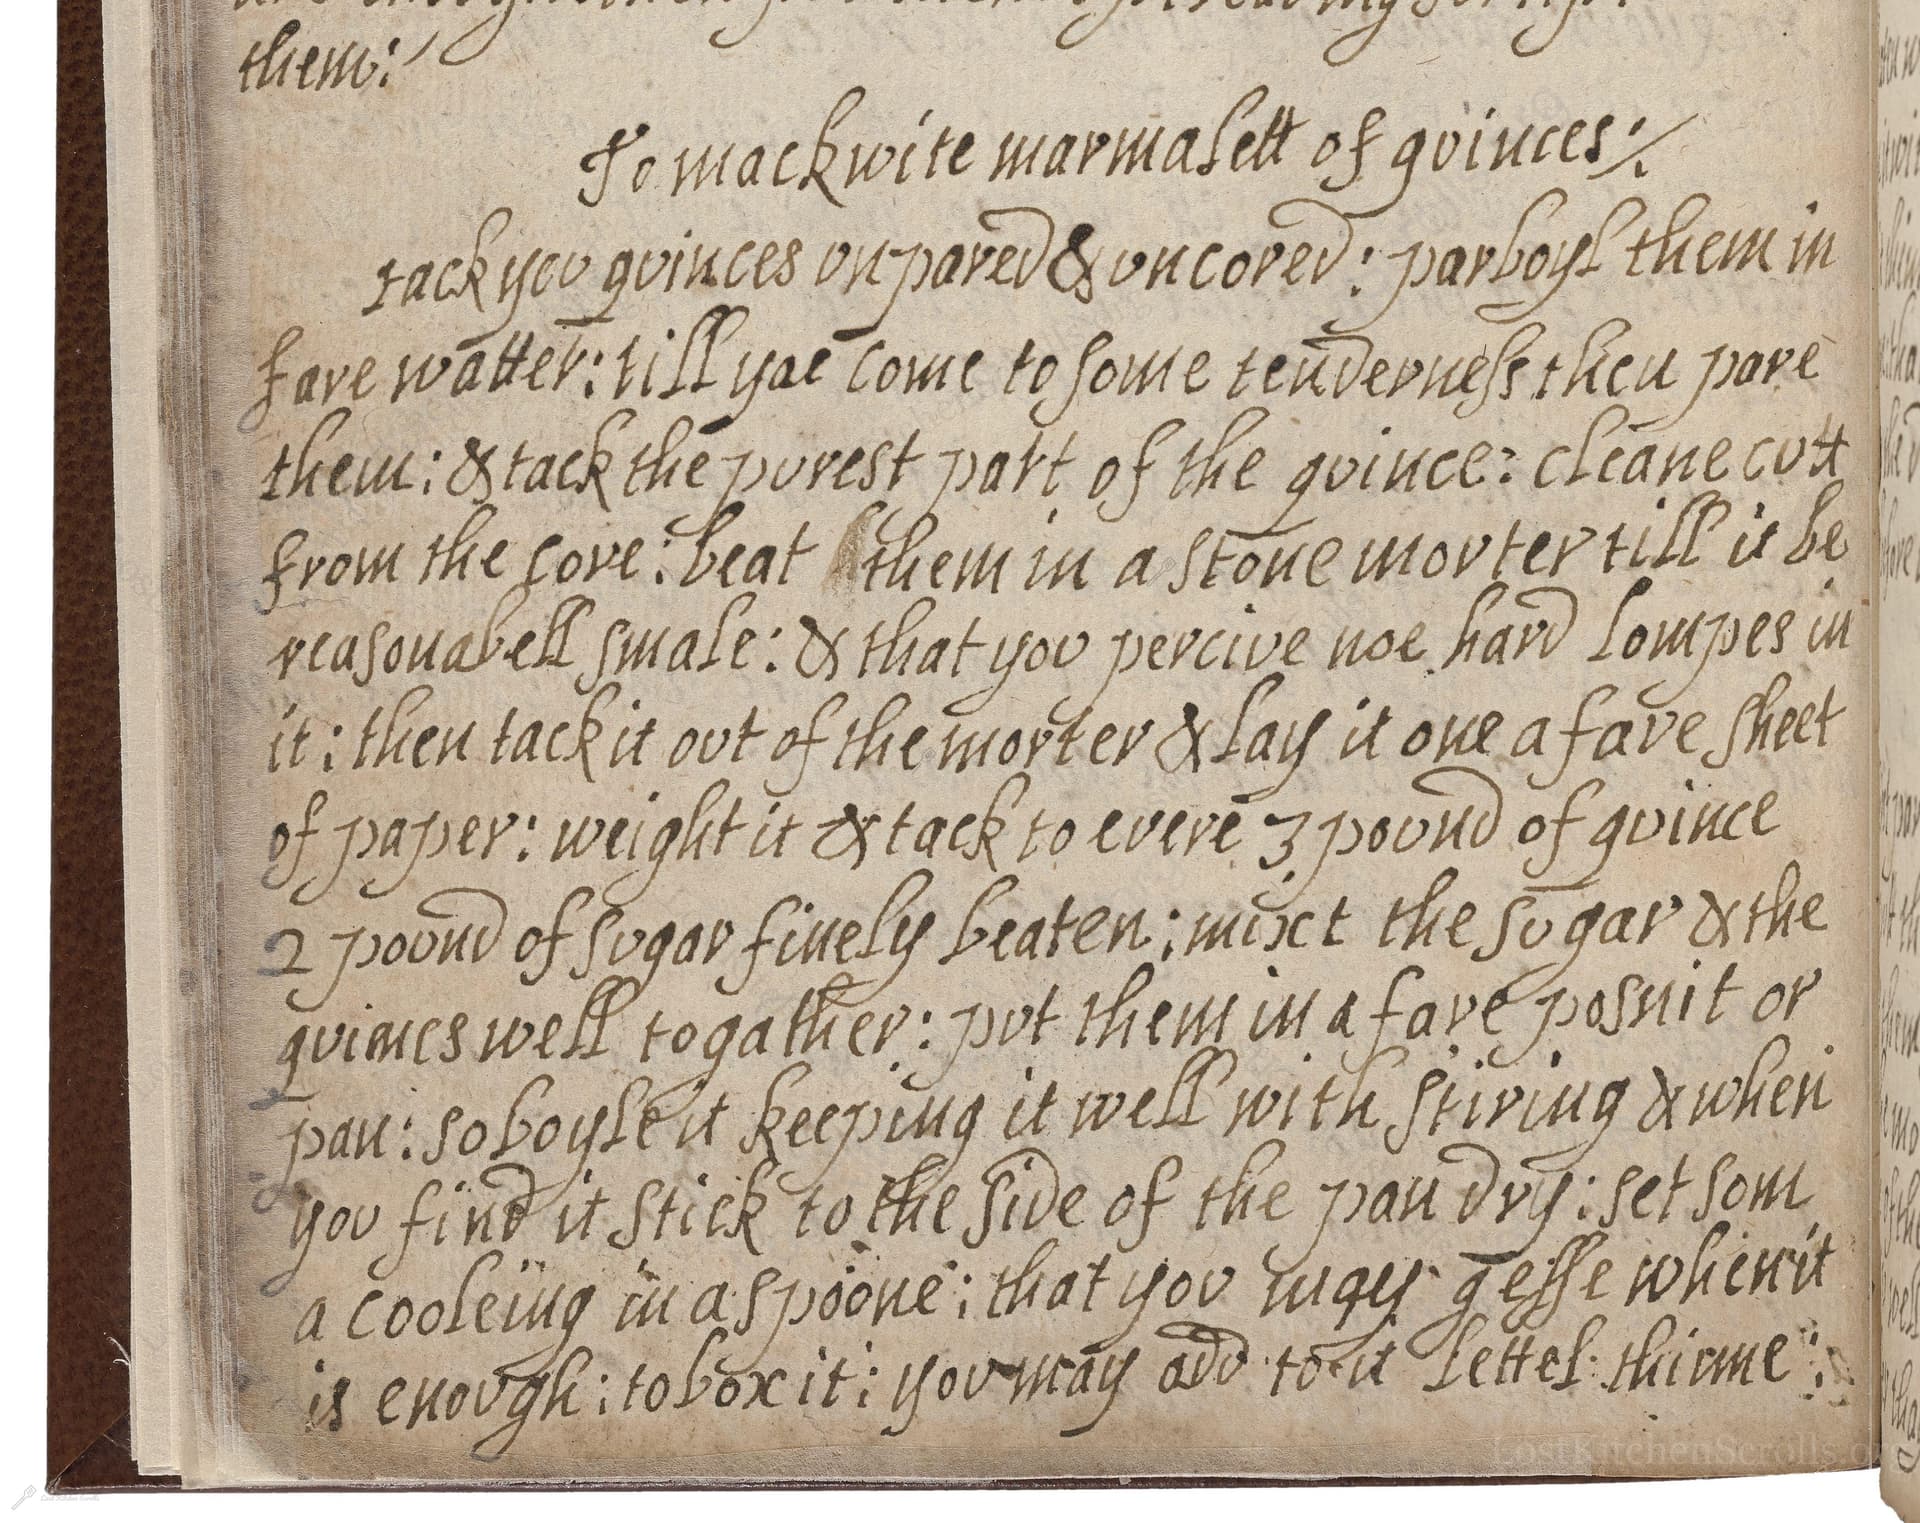 them:
To mack wite marmalett of quinces:/.
tack you quinces vnpared & vncored: parboyl them in
fare watter: till yae come to some tenderness then pare
them: & tack the purest part of the quince: cleane cutt
from the core: beat them in a stone morter till it be
reasonabell smale: & that you percive noe hard lompes in
it: then tack it out of the morter & lay it one a fare sheet
of paper: weight it & tack to evere 3 pound of quince
2 pound of sugar finely beaten: mixt the sugar & the
quinces well togather: put them in a fare posnit or
pan: so boyle it keeping it well with stiring & when
you find it stick to the side of the pan dry: set som
a cooleing in a spoone: that you may gesse when it
is enough: to box it: you may add to it lettel thinne:
LostKitchenScrolls.org
Lost Kitchen Scrolls